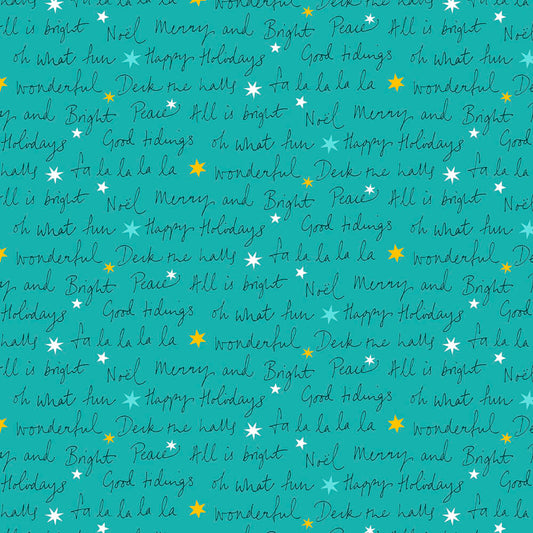 wonderful Deck the halls fa la
Merry and Bright Peace All is bright Noël
oh what fun Happy Holidays Good tidings oh what fun
wonderful Deck the halls fa la la la la wonderful
and Bright Peace All is bright Noël Merry and Bright
Holidays Good tidings oh what fun Happy Holidays
halls fa la la la la wonderful Deck the halls
All is bright Noël Merry and Bright Peace All is bright
oh what fun Happy Holidays Good tidings oh what fun
wonderful Deck the halls fa la la la la wonderful
and Bright Peace All is bright Noël Merry and Bright
Holidays Good tidings oh what fun Happy Holidays Good
halls fa la la la la wonderful Deck the halls
All is bright Noël Merry and Bright Peace All is bright
oh what fun Happy Holidays Good tidings oh what fun
wonderful Deck the halls fa la la la la wonderful
and Bright Peace All is bright Noël Merry and Bright
Holidays Good tidings oh what fun Happy Holidays Good
fa la la la la wonderful Deck the halls